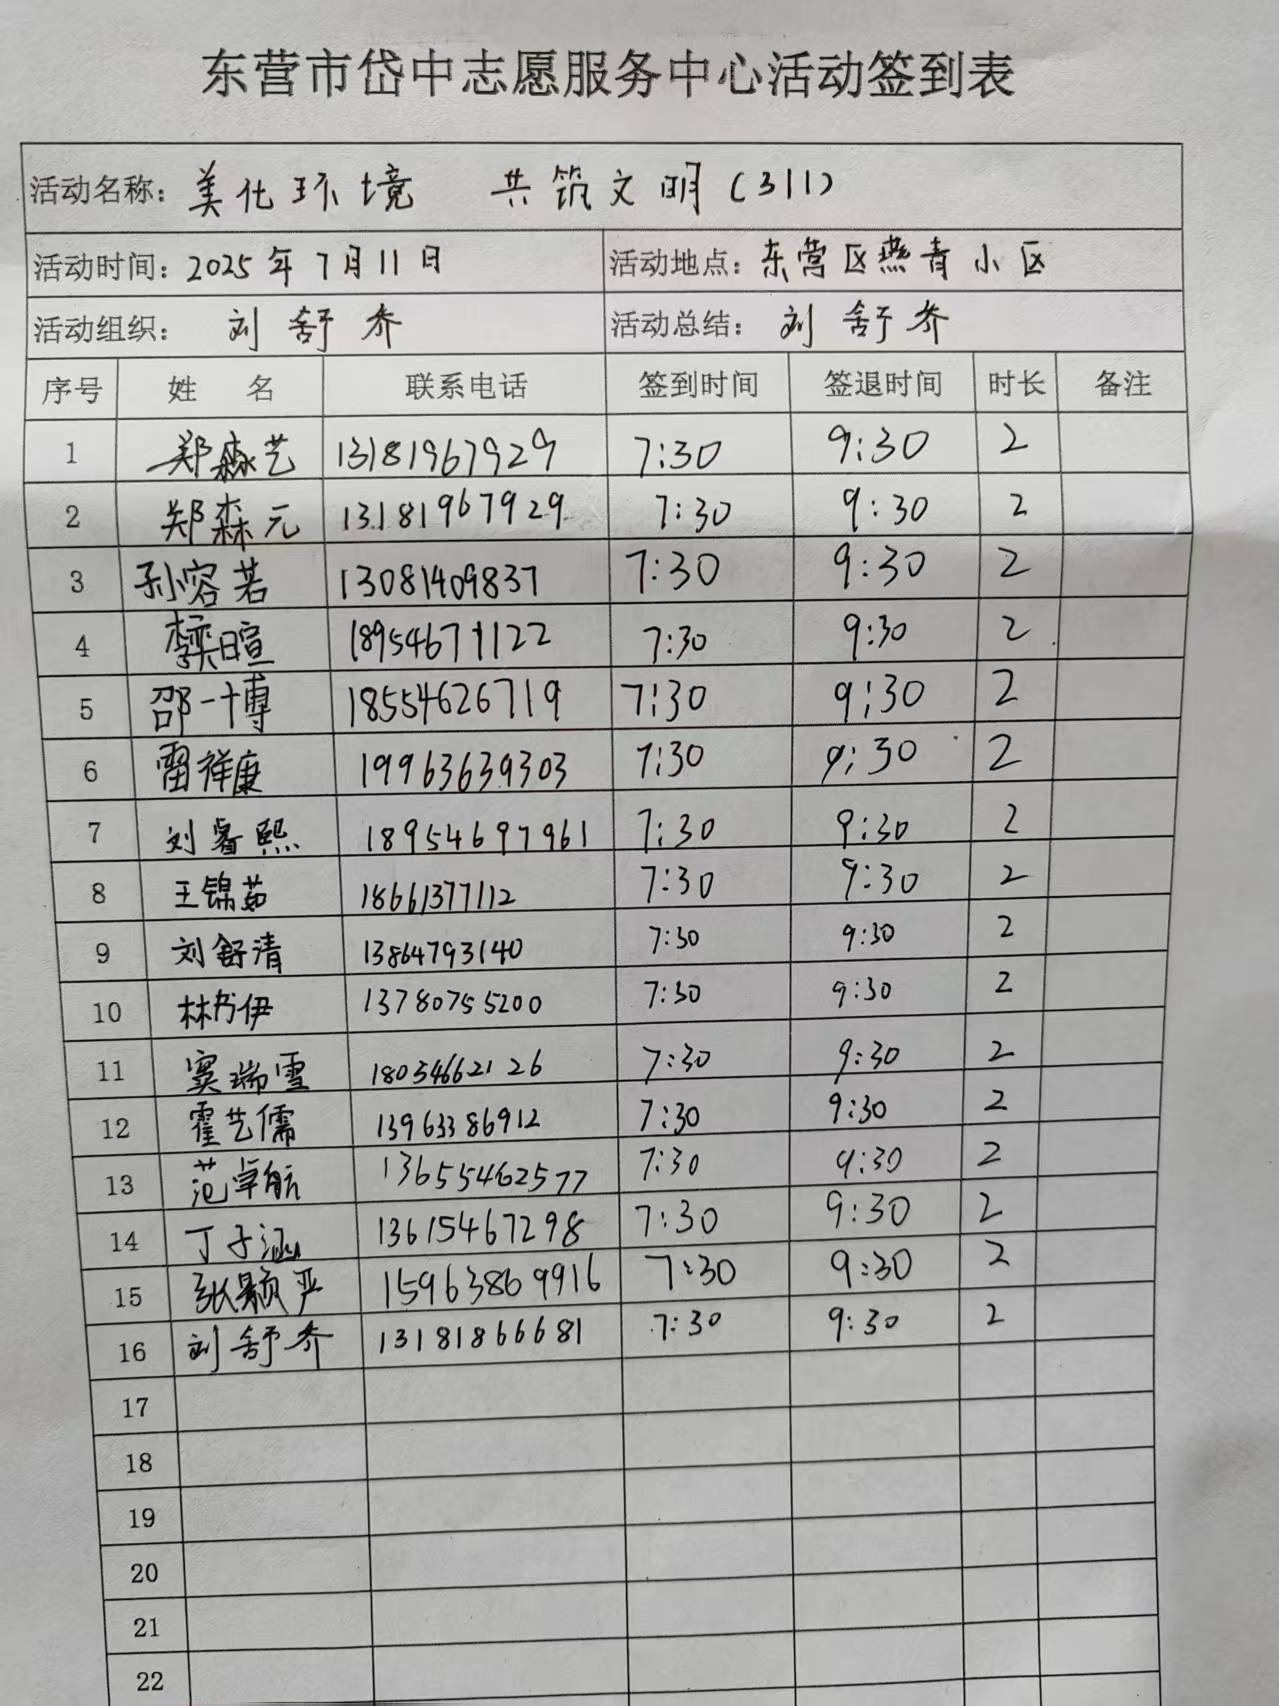 东营市岱中志愿服务中心活动签到表
活动名称：美化环境 共筑文明（311）
活动时间：2025年7月11日 活动地点：东营区燕青小区
活动组织：刘舒乔 活动总结：刘舒乔
序号 姓名 联系电话 签到时间 签退时间 时长 备注
1 郑森艺 13181967929 7:30 9:30 2
2 郑森元 13181967929 7:30 9:30 2
3 孙容若 13081409837 7:30 9:30 2
4 李奕暄 18954671122 7:30 9:30 2
5 邵一博 18554626719 7:30 9:30 2
6 雷祥康 19963639303 7:30 9:30 2
7 刘睿熙 18954697961 7:30 9:30 2
8 王锦茹 18661377112 7:30 9:30 2
9 刘舒清 13864793140 7:30 9:30 2
10 林书伊 13780755200 7:30 9:30 2
11 窦瑞雪 18054662126 7:30 9:30 2
12 霍艺儒 13963386912 7:30 9:30 2
13 范卓航 13655462577 7:30 9:30 2
14 丁子涵 13615467298 7:30 9:30 2
15 张颢严 15963869916 7:30 9:30 2
16 刘舒乔 13181866681 7:30 9:30 2
17
18
19
20
21
22